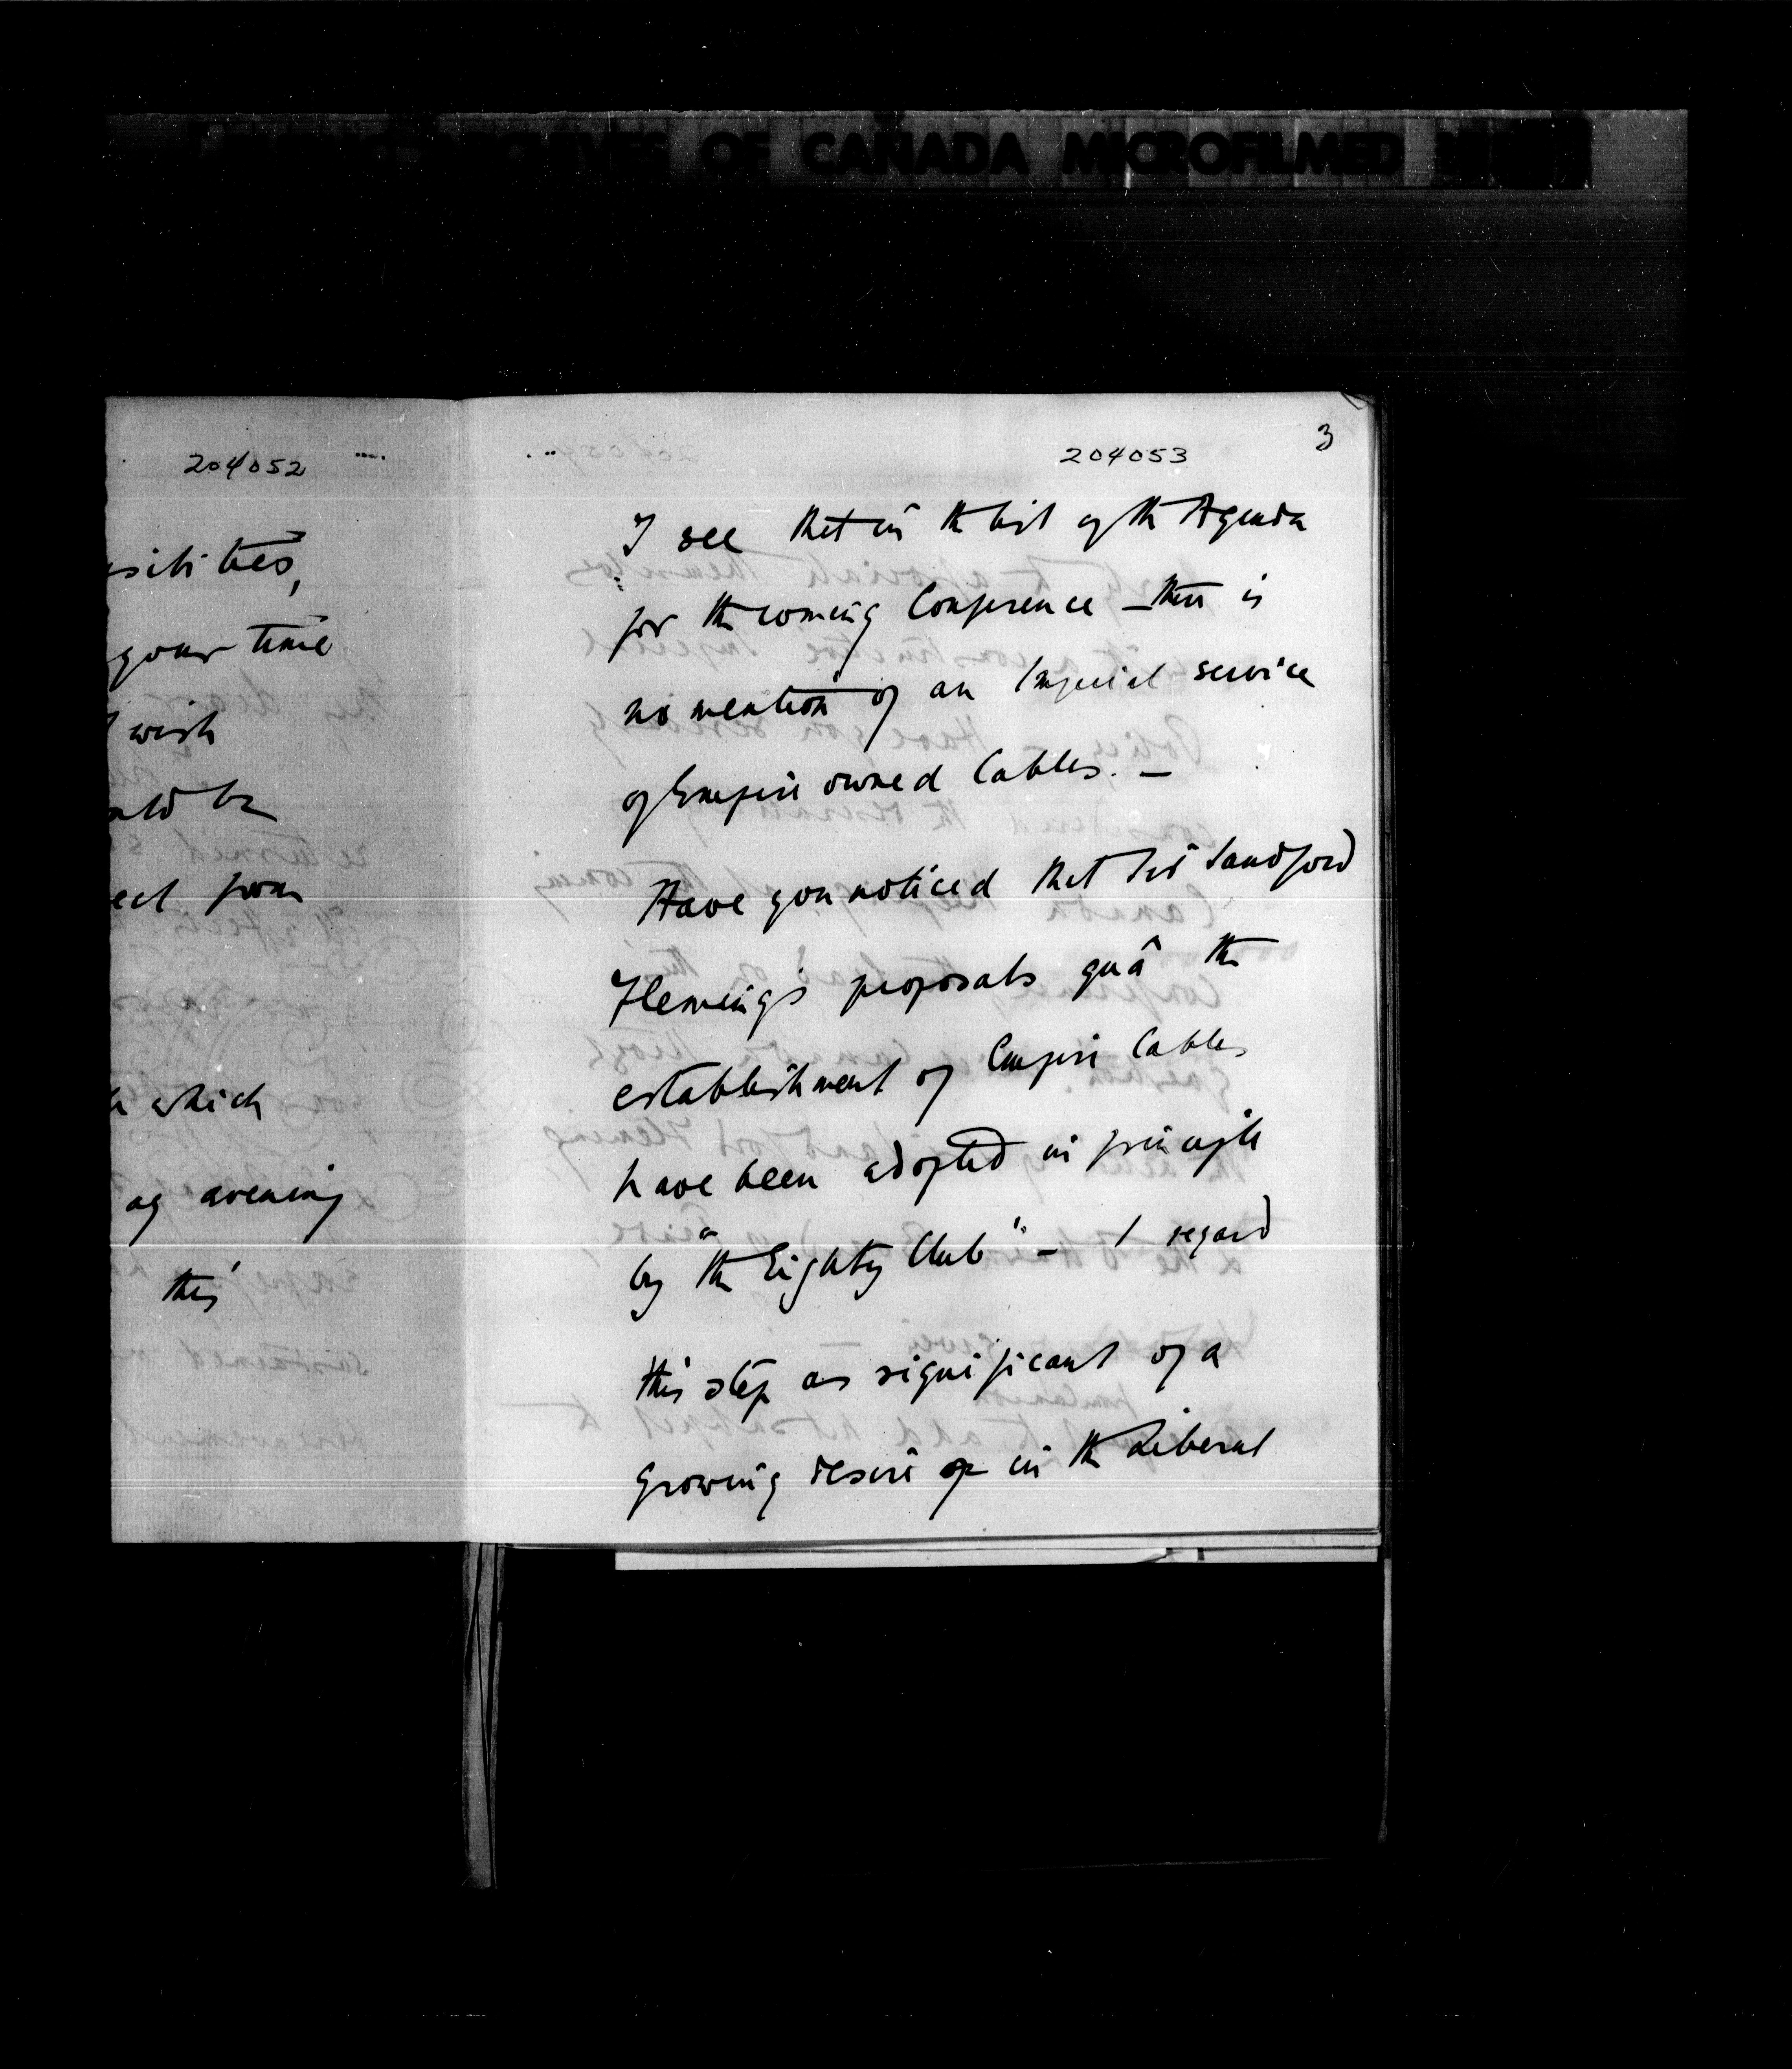 ARCHIVES OF CANADA MICROFILMED
204052
sibilities,
your time
I wish
uld be
ect from
which
ag evening
this
204053
3
I see that in the list of the Agenda
for the coming Conference – there is
no mention of an Imperial service
of Empire owned Cables. –
Have you noticed that Sir Sandford
Fleming's proposals quâ the
establishment of Empire Cables
have been adopted in principle
by "the Eighty Club" – I regard
this step as significant of a
growing desire of in the Liberal